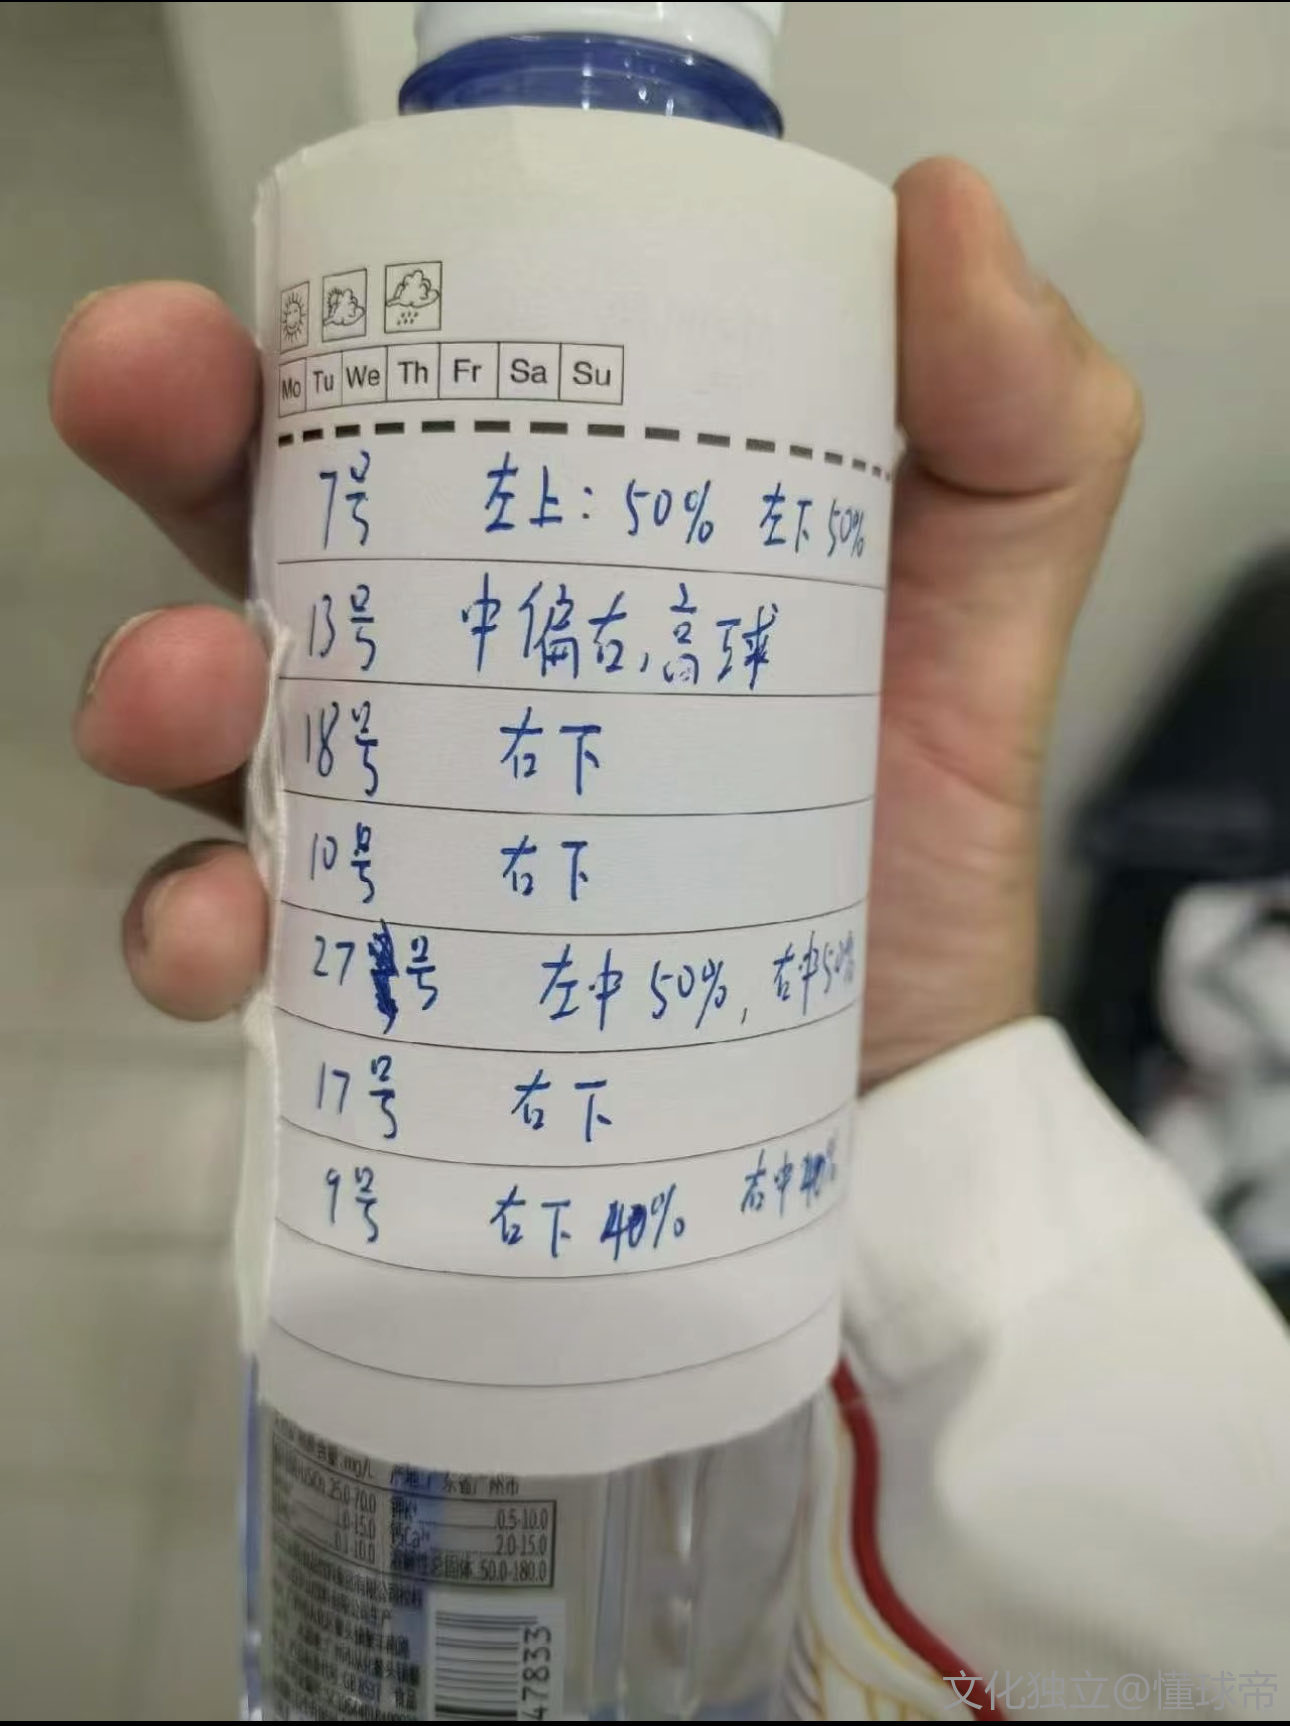 Mo Tu We Th Fr Sa Su
7号 左上：50% 左下50%
13号 中偏右，高球
18号 右下
10号 右下
27号 左中50%，右中50%
17号 右下
9号 右下40% 右中40%
mg/L 产地:广东省广州市
25.0-70.0 钾K⁺ 0.5-10.0
1.0-15.0 钙Ca²⁺ 2.0-15.0
0.1-10.0 溶解性总固体 50.0-180.0
47833
文化独立@懂球帝